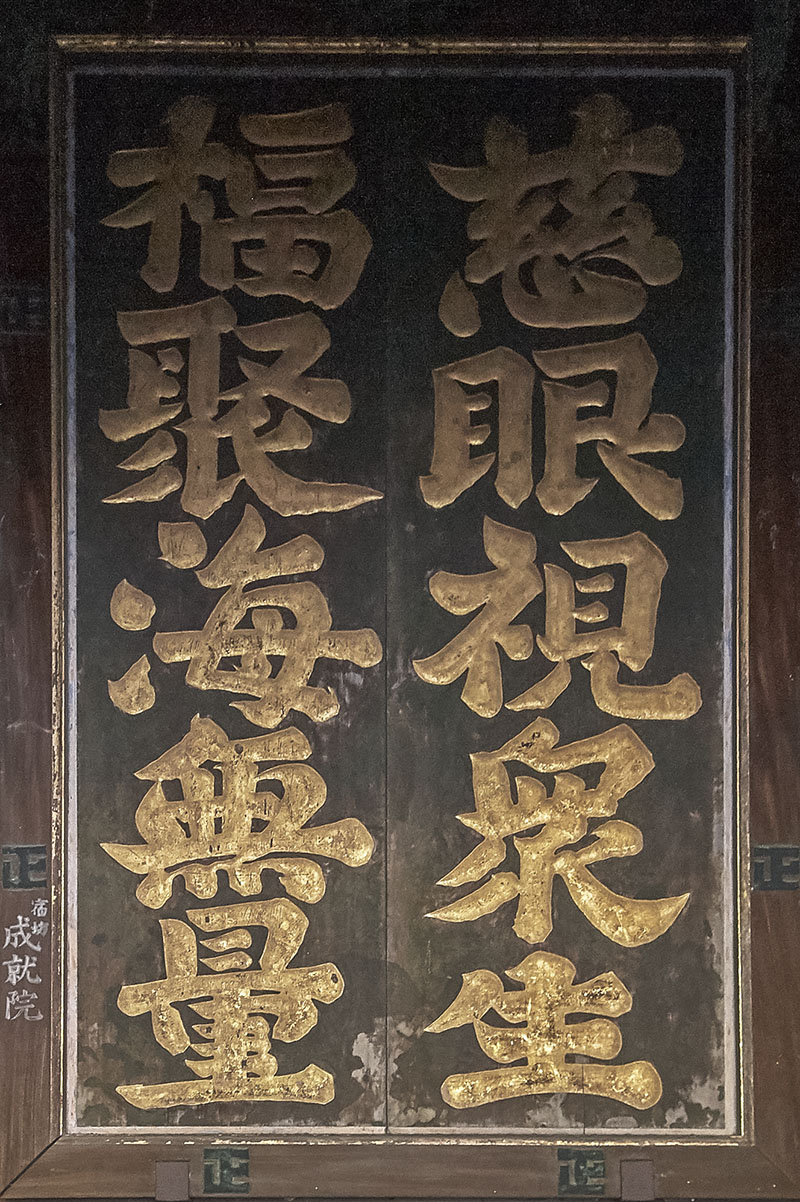 慈眼視衆生
福聚海無量
宿坊
成就院
正
正
正
正